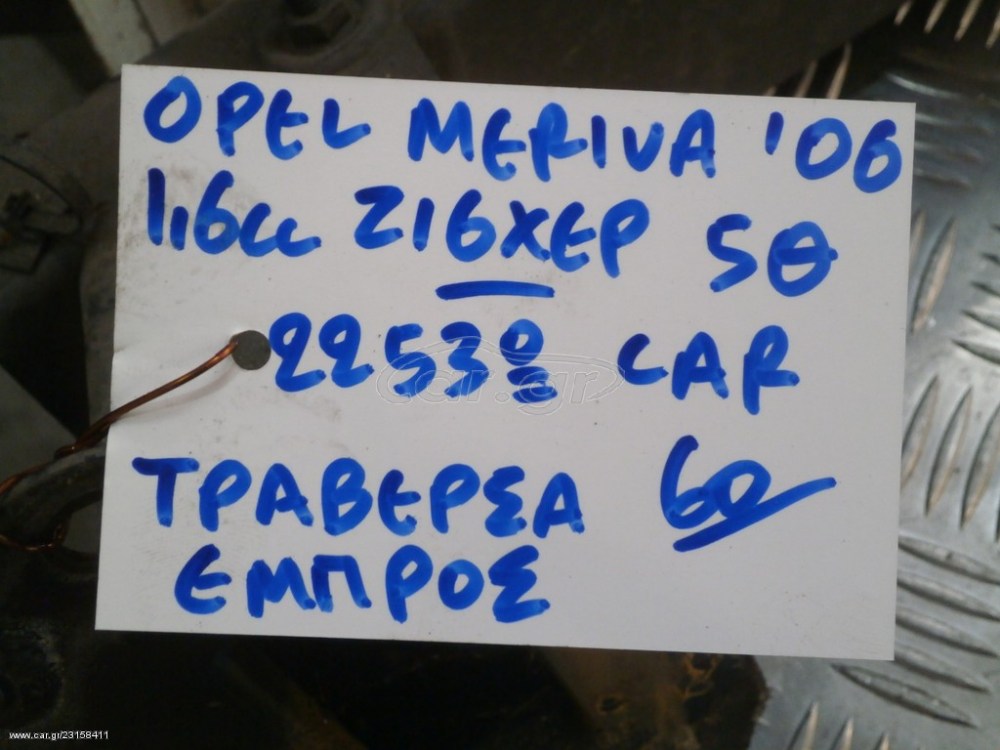 OPEL MERIVA '06
1,6cc Z16XEP 5Θ
22532 CAR
ΤΡΑΒΕΡΣΑ 60
ΕΜΠΡΟΣ
car.gr
www.car.gr/23158411